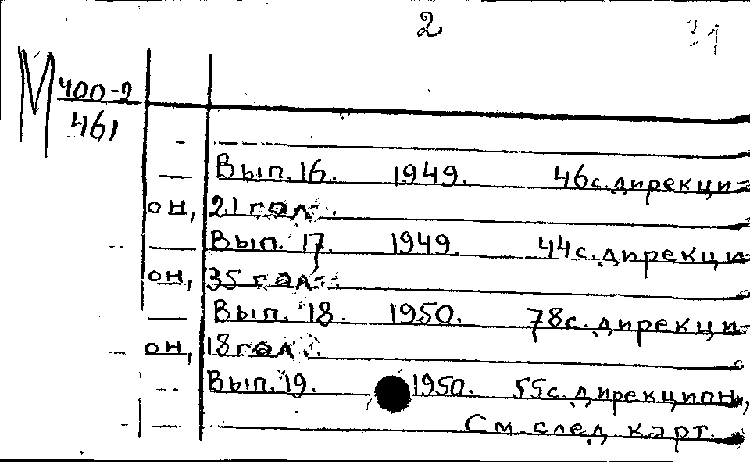 2
31
М 400-2
461
Вып. 16. 1949. 46с. дирекци-
он, 21 гол.
Вып. 17. 1949. 44с. дирекци-
он, 35 гол.
Вып. 18. 1950. 78с. дирекци-
он, 18 гол.
Вып. 19. 1950. 55с. дирекцион,
См. след. карт.